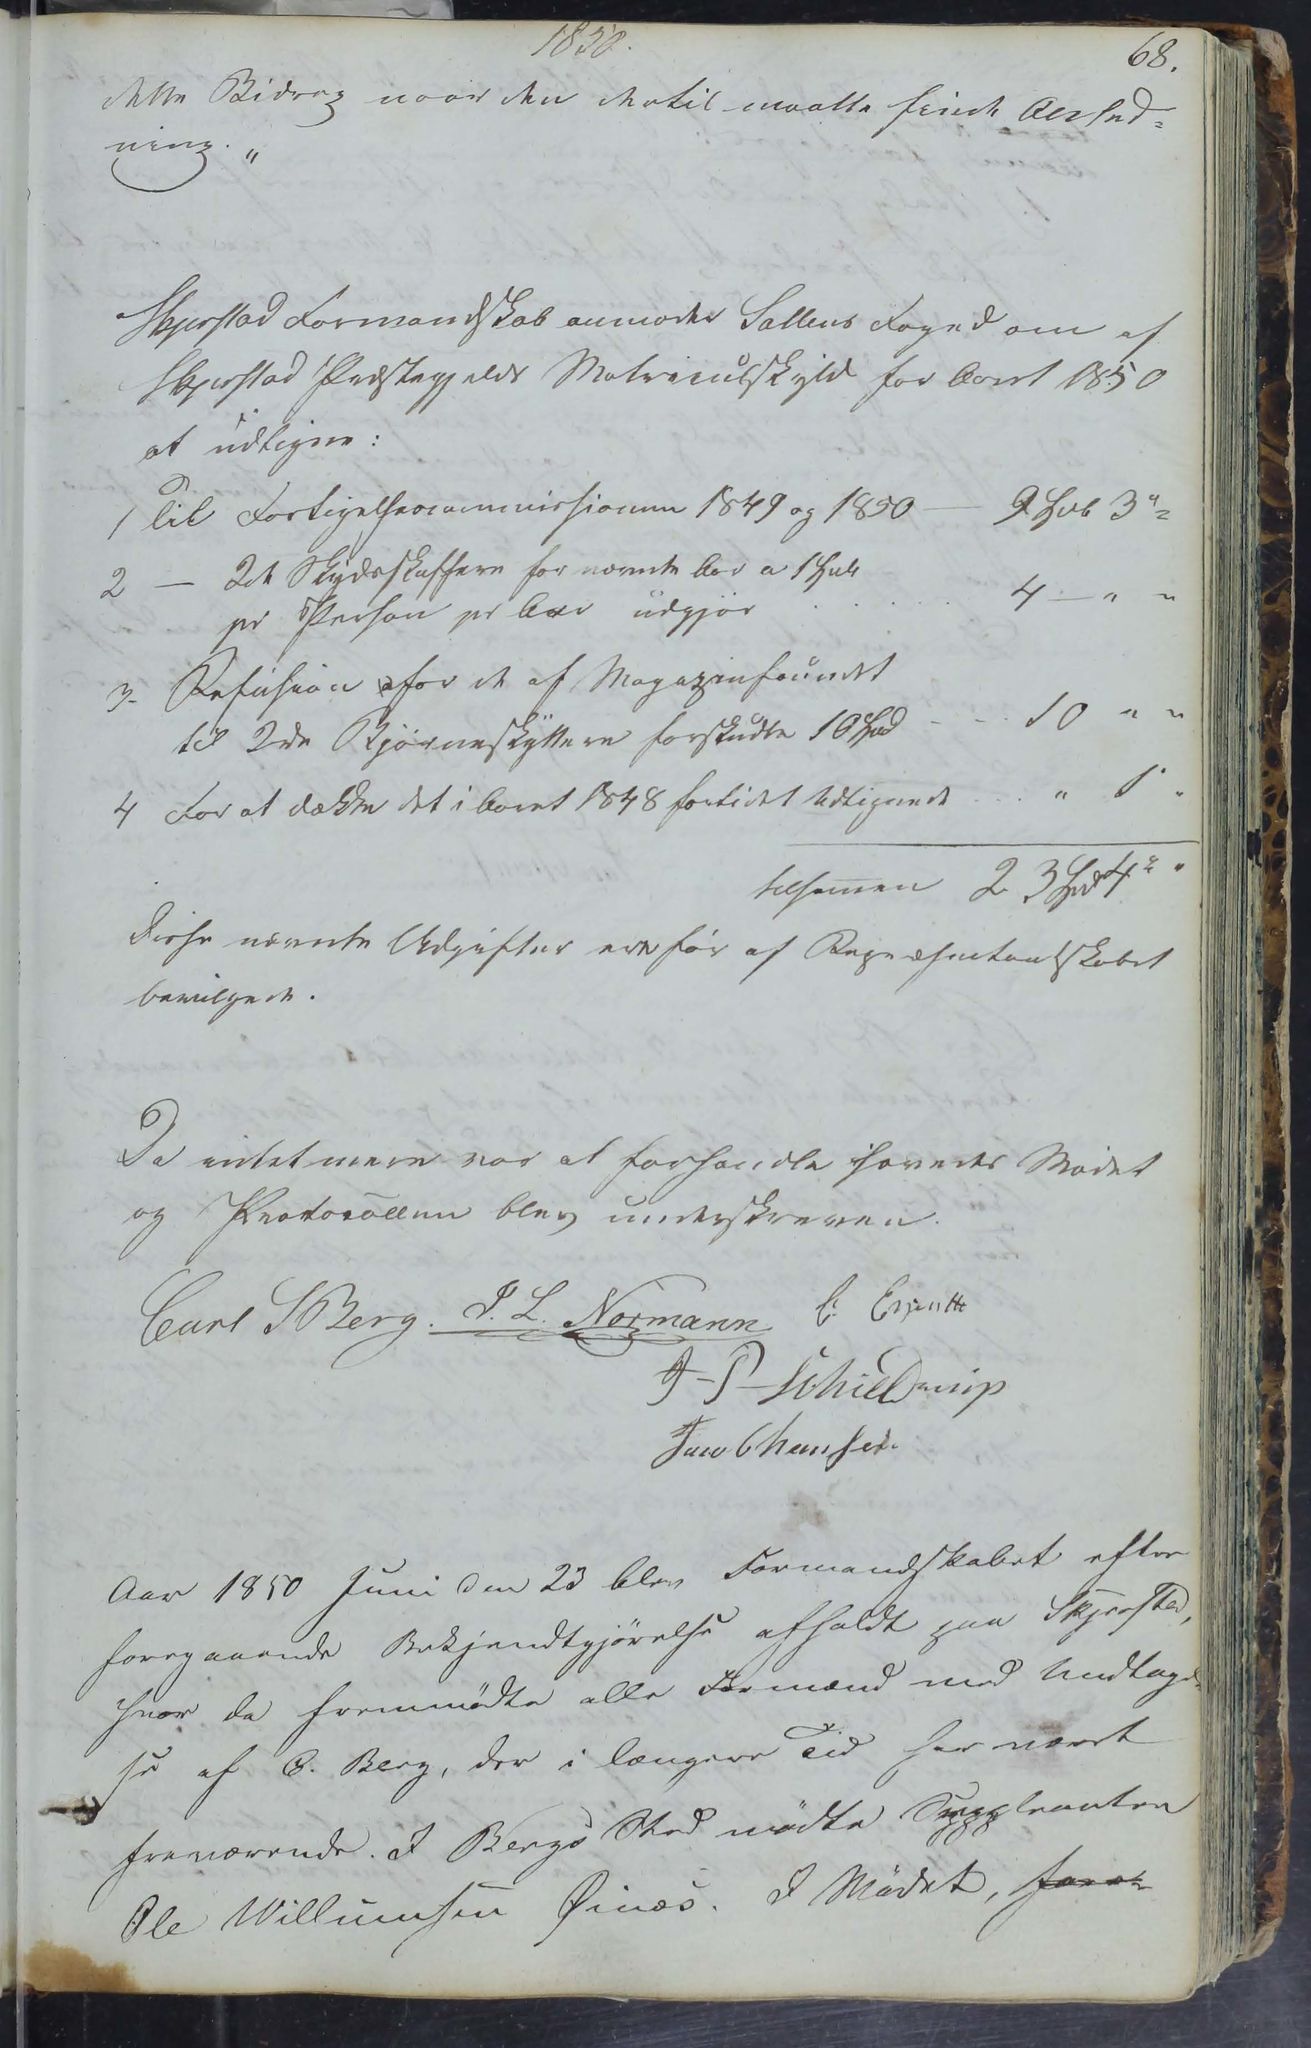 1850.
68.
dette Bidrag naar den dertil maatte finde Anled=
ning. "
Skjerstad Formandskab anmoder Saltens Foged om af
Skjerstad Præstegjelds Matriculskyld for Aaret 1850
at udligne:
1 Til Forligelsescommissionen 1849 og 1850 — 9 Spd 3 "
2 — 2de Skydsskaffere for nævnte Aar a 1 Spd
pr Person pr Aar udgjør . . . . . 4 — " "
3. Refusion for de af Magazinfondet
til 2de Bjørneskyttere forskudte 10 Spd - - . 10 " "
4 For at dække det i Aaret 1848 forlidet Udlignede . . . " 1 "
tilsammen 23 Spd 4 " "
Disse nævnte Udgifter ere før af Repræsentantskabet
bevilgede.
Da intet mere var at forhandle hævedes Mødet
og Protocollen blev underskreven.
Carl S Berg. P. L. Normann C:
J-P-Schieldrup
Jacob Hansen.
Aar 1850 Juni den 23 blev Formandskabet efter
foregaaende Bekjendtgjørelse afholdt paa Skjerstad,
hvor da fremmødte alle Formænd med Undtagel
se af C. Berg, der i længere Tid har været
fraværende. I Bergs Sted mødte Suppleanten
Ole Willumsen Øinæs. I Mødet,